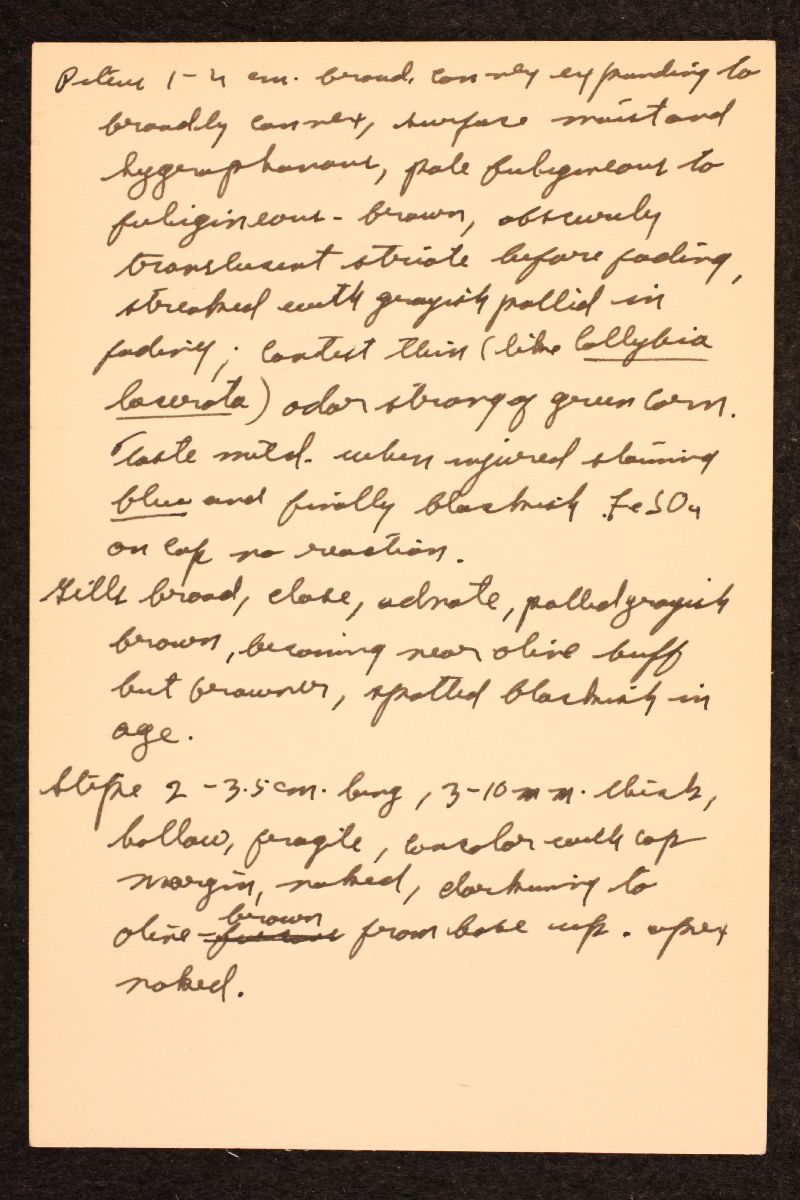 Pileus 1-4 cm. broad, convex expanding to
broadly convex, surface moist and
hygrophanous, pale fuligineous to
fuligineous-brown, obscurely
translucent striate before fading,
streaked with grayish pallid in
fading; context thin (like Collybia
lacerata) odor strong of green corn.
Taste mild. when injured staining
blue and finally blackish. FeSO4
on cap no reaction.
Gills broad, close, adnate, pallid grayish
brown, becoming near olive buff
but browner, spotted blackish in
age.
Stipe 2-3.5 cm. long, 3-10 mm. thick,
hollow, fragile, concolor with cap
margin, naked, darkening to
olive-brown from base up. apex
naked.